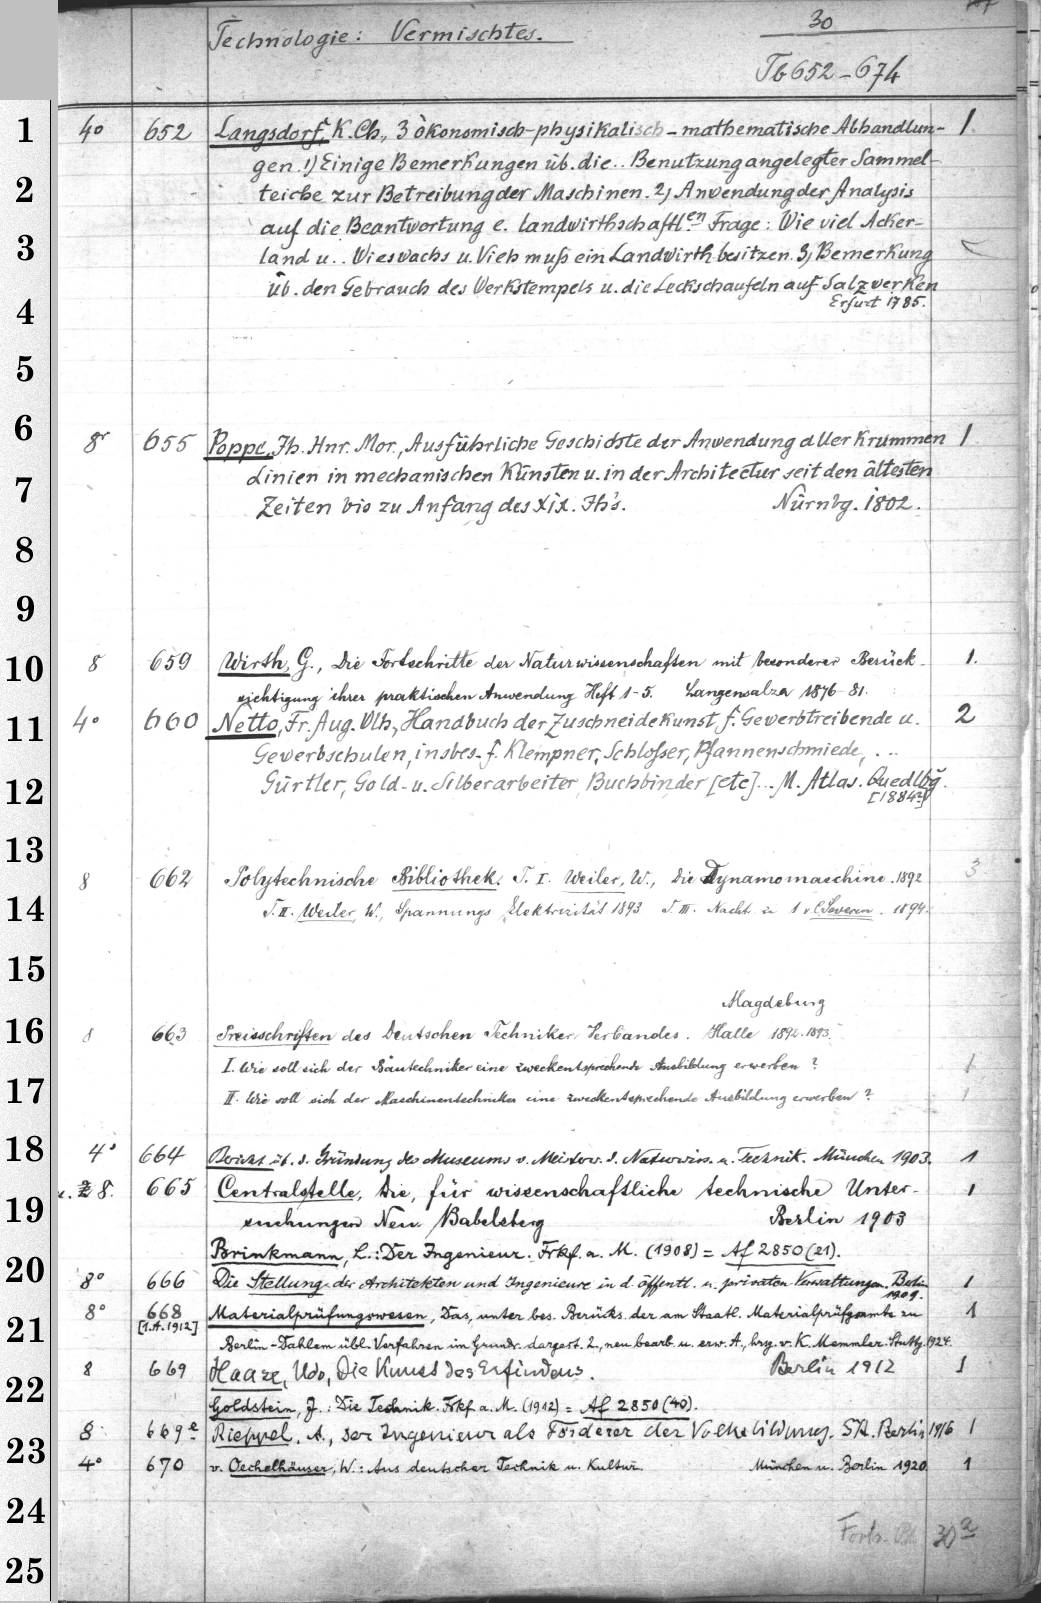 Technologie: Vermischtes. 30
Tb 652-674
1 4o 652 Langsdorf, K. Ch., 3 ökonomisch-physikalisch-mathematische Abhandlun- 1.
gen. 1) Einige Bemerkungen üb. die.. Benutzung angelegter Sammel-
2 teiche zur Betreibung der Maschinen. 2) Anwendung der Analysis
auf die Beantwortung e. landwirthschaftlen Frage: Wie viel Acker-
3 land u.. Wieswachs u. Vieh muß ein Landwirth besitzen. 3) Bemerkung
4 üb. den Gebrauch des Werkstempels u. die Leckschaufeln auf Salzwerken
Erfurt 1785.
5
6 8o 655 Poppe, Jh. Hnr. Mor., Ausführliche Geschichte der Anwendung aller Krummen 1
7 Linien in mechanischen Künsten u. in der Architectur seit den ältesten
Zeiten bis zu Anfang des XIX. Jh's. Nürnbg. 1802.
8
9
10 8 659 Wirth, G., Die Fortschritte der Naturwissenschaften mit besonderer Berück- 1.
sichtigung ihrer praktischen Anwendung Heft 1-5. Langensalza 1876-81.
11 4o 660 Netto, Fr. Aug. Wlh., Handbuch der Zuschneidekunst f. Gewerbtreibende u. 2
Gewerbschulen, insbes. f. Klempner, Schlosser, Pfannenschmiede, ...
12 Gürtler, Gold- u. Silberarbeiter, Buchbinder [etc]... M. Atlas. Quedlbg.
[1884?]
13
8 662 Polytechnische Bibliothek. T. I. Weiler, W., Die Dynamomaschine. 1892 3
14 T. II. Weiler, W., Spannungs Elektrizität 1893 T. III. 1894.
15
Magdeburg
16 8 663 Preisschriften des Deutschen Techniker Verbandes. Halle 1892.1893.
I. Wie soll sich der Bautechniker eine zweckentsprechende Ausbildung erwerben? 1
17 II. Wie soll sich der Maschinentechniker eine zweckentsprechende Ausbildung erwerben? 1
18 4o 664 Bericht üb. d. Gründung des Museums v. Meisterw. d. Naturwiss. u. Technik. München 1903. 1
8. 665 Centralstelle, Die, für wissenschaftliche technische Unter- 1
19 suchungen Neu Babelsberg Berlin 1903
Brinkmann, L.: Der Ingenieur. Frkf. a. M. (1908) = Af 2850 (21).
20 8o 666 Die Stellung der Architekten und Ingenieure in d. öffentl. u. privaten Verwaltungen. Berlin 1909. 1
8o 668 Materialprüfungswesen, Das, unter bes. Berücks. der am Staatl. Materialprüfgsamte zu 1
21 [1.A.1912] Berlin-Dahlem übl. Verfahren im Grundr. dargest. 2., neu bearb. u. erw. A., hrg. v. K. Memmler. Stuttg. 1924.
8 669 Haase, Udo, Die Kunst des Erfindens. Berlin 1912 1
22 Goldstein, J.: Die Technik. Frkf. a. M. (1912) = Af 2850 (40).
8. 669e Rieppel, A., Der Ingenieur als Förderer der Volksbildung. SA. Berlin 1916 1
23
4o 670 v. Oechelhäuser, W.: Aus deutscher Technik u. Kultur. München u. Berlin 1920. 1
24
30a
25